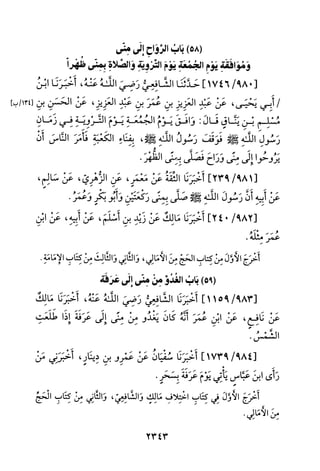 (٥٨) بَابُ الرَّوَاحِ إِلَى مِنًى
وَمُوَافَقَةِ يَوْمِ الجُمُعَةِ يَوْمَ التَّرْوِيَةِ وَالصَّلاةِ بِمِنًى ظُهْراً
[١٧٤٦/٩٨٠] حَدَّثَنَا الشَّافِعِيُّ رَضِيَ اللَّهُ عَنْهُ، أَخْبَرَنَا ابْنُ
/ أَبِي يَحْيَى، عَنْ عَبْدِ العَزِيزِ بنِ عُمَرَ بنِ عَبْدِ العَزِيزِ، عَنْ الحَسَنِ بنِ [١٣٤/ب]
مُسْلِمِ بْنِ يَنَّاقٍ قَالَ: وَافَقَ يَوْمُ الجُمُعَةِ يَوْمَ التَّرْوِيَةِ فِي زَمَانِ
رَسُولِ اللَّهِ ﷺ فَوَقَفَ رَسُولُ اللَّهِ ﷺ، بِفِنَاءِ الكَعْبَةِ فَأَمَرَ النَّاسَ أَنْ
يَرُوحُوا إِلَى مِنًى وَرَاحَ فَصَلَّى بِمِنًى الظُّهْرَ.
[٢٣٩/٩٨١] أَخْبَرَنَا الثِّقَةُ عَنْ مَعْمَرٍ، عَنِ الزُّهْرِيِّ، عَنْ سَالِمٍ،
عَنْ أَبِيهِ أَنَّ رَسُولَ اللَّهِ ﷺ صَلَّى بِمِنًى رَكْعَتَيْنِ وَأَبُو بَكْرٍ وَعُمَرُ.
[٢٤٠/٩٨٢] أَخْبَرَنَا مَالِكٌ عَنْ زَيْدِ بنِ أَسْلَمَ، عَنْ أَبِيهِ، عَنْ ابْنِ
عُمَرَ مِثْلَهُ.
أَخْرَجَ الأَوَّلَ مِنْ كِتَابِ الحَجِّ مِنَ الأَمَالِي، وَالثَّانِي وَالثَّالِثَ مِنْ كِتَابِ الإِمَامَةِ.
(٥٩) بَابُ الغُدُوِّ مِنْ مِنًى إِلَى عَرَفَةَ
[١١٥٩/٩٨٣] أَخْبَرَنَا الشَّافِعِيُّ رَضِيَ اللَّهُ عَنْهُ، أَخْبَرَنَا مَالِكٌ
عَنْ نَافِعٍ، عَنْ ابْنِ عُمَرَ أَنَّهُ كَانَ يَغْدُو مِنْ مِنًى إِلَى عَرَفَةَ إِذَا طَلَعَتِ
الشَّمْسُ.
[١٧٣٩/٩٨٤] أَخْبَرَنَا سُفْيَانُ عَنْ عَمْرِو بنِ دِينَارٍ، أَخْبَرَنِي مَنْ
رَأَى ابنَ عَبَّاسٍ يَأْتِي يَوْمَ عَرَفَةَ بِسَحَرٍ.
أَخْرَجَ الأَوَّلَ فِي كِتَابِ اخْتِلافِ مَالِكٍ وَالشَّافِعِيِّ، وَالثَّانِي مِنْ كِتَابِ الحَجِّ
مِنَ الأَمَالِي.
٢٣٤٣